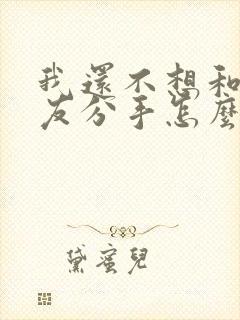 我還不想和
友分手怎麼
黛蜜兒